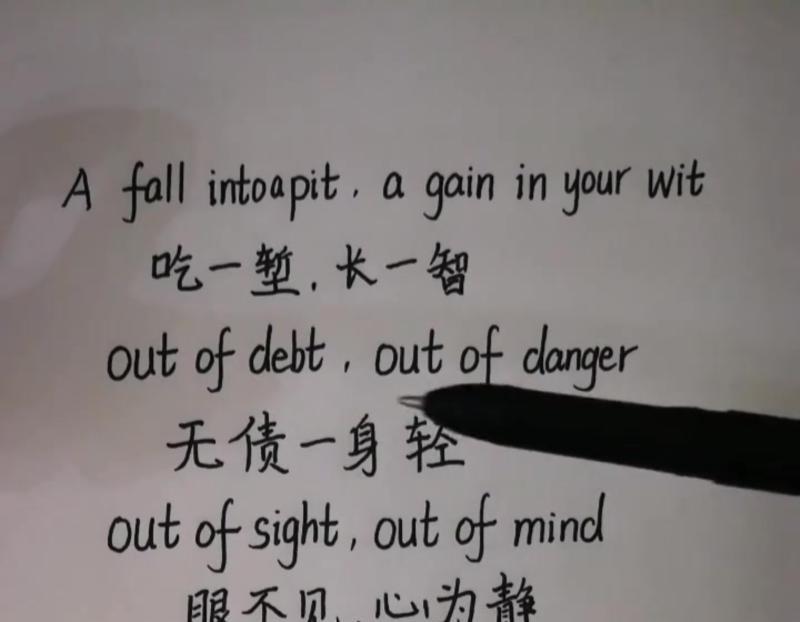 A fall intoapit, a gain in your wit
吃一堑,长一智
out of debt, out of danger
无债一身轻
out of sight, out of mind
眼不见,心为静